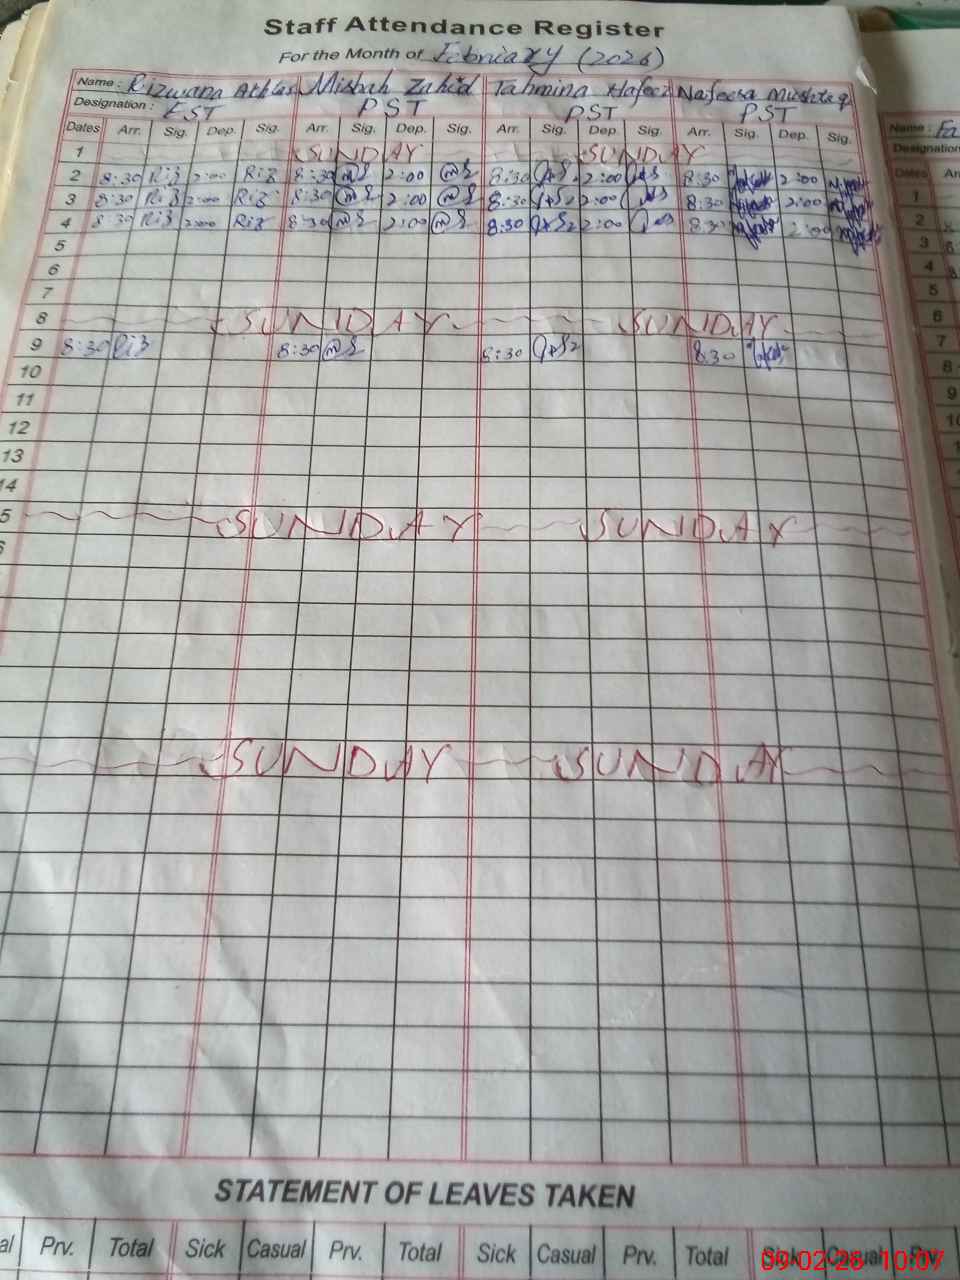 Staff Attendance Register
For the Month of February (2026)
Name: Rizwana Akhlas Misbah Zahid Tahmina Hafeez Nafeesa Mushtaq
Designation: EST PST PST PST
Dates Arr. Sig. Dep. Sig. Arr. Sig. Dep. Sig. Arr. Sig. Dep. Sig. Arr. Sig. Dep. Sig.
1 SUNDAY SUNDAY
2 8:30 Riz 2:00 Riz 8:30 2:00 8:30 2:00 8:30 2:00
3 8:30 Riz 2:00 Riz 8:30 2:00 8:30 2:00 8:30 2:00
4 8:30 Riz 2:00 Riz 8:30 2:00 8:30 2:00 8:30 2:00
5
6
7
8 SUNDAY SUNDAY
9 8:30 Riz 8:30 8:30 8:30
10
11
12
13
14
5 SUNDAY SUNDAY
SUNDAY SUNDAY
STATEMENT OF LEAVES TAKEN
al Prv. Total Sick Casual Prv. Total Sick Casual Prv. Total Sick Casual Prv.
09-02-26 10:07
Name: Fa
Designation
Dates Arr
1
2
3
4
5
6
7
8
9
10